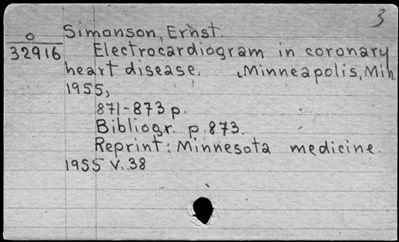 3
o Simonson, Ernst.
32916 Electrocardiogram in coronary
heart disease. Minneapolis, Min.
1955,
871-873 p.
Bibliogr. p. 873.
Reprint: Minnesota medicine.
1955 v. 38